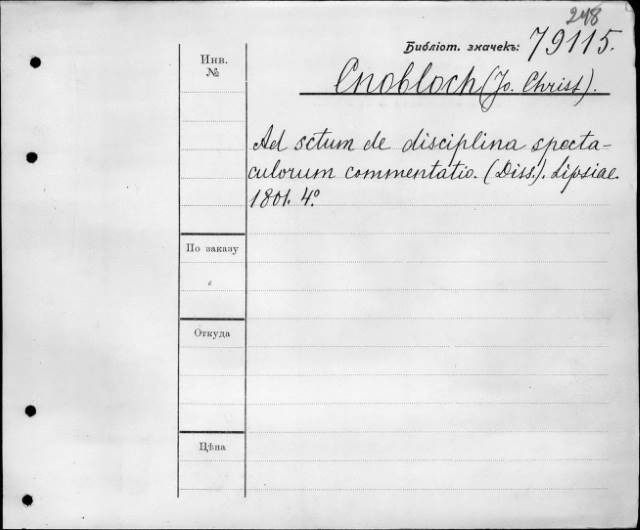 248
Библіот. значекъ: 79115.
Инв.
№
Cnobloch (Jo. Christ).
Ad sctum de disciplina specta-
culorum commentatio. (Diss.). Lipsiae.
1801. 4º
По заказу
Откуда
Цѣна